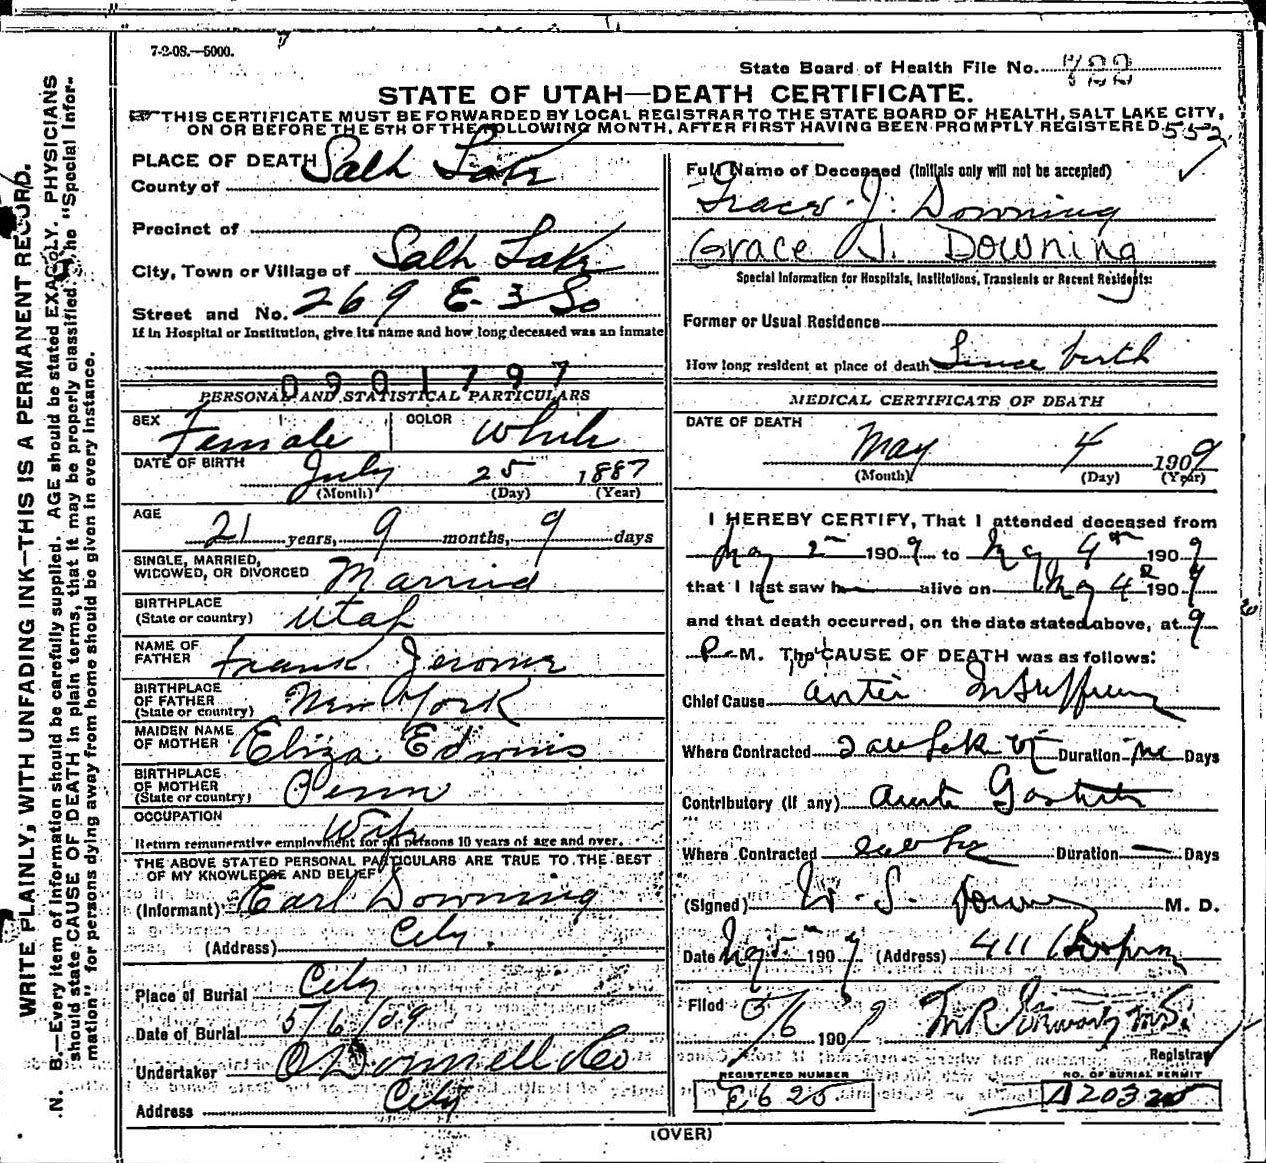 7-2-08.—5000.
State Board of Health File No. 722
STATE OF UTAH—DEATH CERTIFICATE.
THIS CERTIFICATE MUST BE FORWARDED BY LOCAL REGISTRAR TO THE STATE BOARD OF HEALTH, SALT LAKE CITY,
ON OR BEFORE THE 5TH OF THE FOLLOWING MONTH, AFTER FIRST HAVING BEEN PROMPTLY REGISTERED. 552
PLACE OF DEATH
County of Salt Lake
Precinct of
City, Town or Village of Salt Lake
Street and No. 269 E-3 So
If in Hospital or Institution, give its name and how long deceased was an inmate
0901797
PERSONAL AND STATISTICAL PARTICULARS
SEX Female COLOR White
DATE OF BIRTH July 25 1887
(Month) (Day) (Year)
AGE 21 years, 9 months, 9 days
SINGLE, MARRIED,
WIDOWED, OR DIVORCED Married
BIRTHPLACE
(State or country) Utah
NAME OF
FATHER Frank Jerome
BIRTHPLACE
OF FATHER
(State or country) New York
MAIDEN NAME
OF MOTHER Eliza Edwins
BIRTHPLACE
OF MOTHER
(State or country) Penn
OCCUPATION Wife
Return remunerative employment for all persons 10 years of age and over.
THE ABOVE STATED PERSONAL PARTICULARS ARE TRUE TO THE BEST
OF MY KNOWLEDGE AND BELIEF
(Informant) Earl Downing
(Address) City.
Place of Burial City
Date of Burial 5/6/09
Undertaker O'Donnell & Co
Address City
Full Name of Deceased (Initials only will not be accepted)
Grace J. Downing
Grace J. Downing
Special Information for Hospitals, Institutions, Transients or Recent Residents:
Former or Usual Residence
How long resident at place of death Since birth
MEDICAL CERTIFICATE OF DEATH
DATE OF DEATH
May 4 1909
(Month) (Day) (Year)
I HEREBY CERTIFY, That I attended deceased from
May 2 1909 to May 4th 1909
that I last saw h alive on May 4 1909
and that death occurred, on the date stated above, at 9
P M. The CAUSE OF DEATH was as follows:
Chief Cause
Where Contracted Duration Days
Contributory (if any)
Where Contracted Duration — Days
(Signed) W. S. M. D.
Date May 5 1909 (Address) 411
Filed 5/6 1909
Registrar
REGISTERED NUMBER
E625
NO. OF BURIAL PERMIT
A20325
(OVER)
WRITE PLAINLY, WITH UNFADING INK—THIS IS A PERMANENT RECORD.
N. B.—Every item of information should be carefully supplied. AGE should be stated EXACTLY. PHYSICIANS
should state CAUSE OF DEATH in plain terms, that it may be properly classified. The "Special Infor-
mation" for persons dying away from home should be given in every instance.